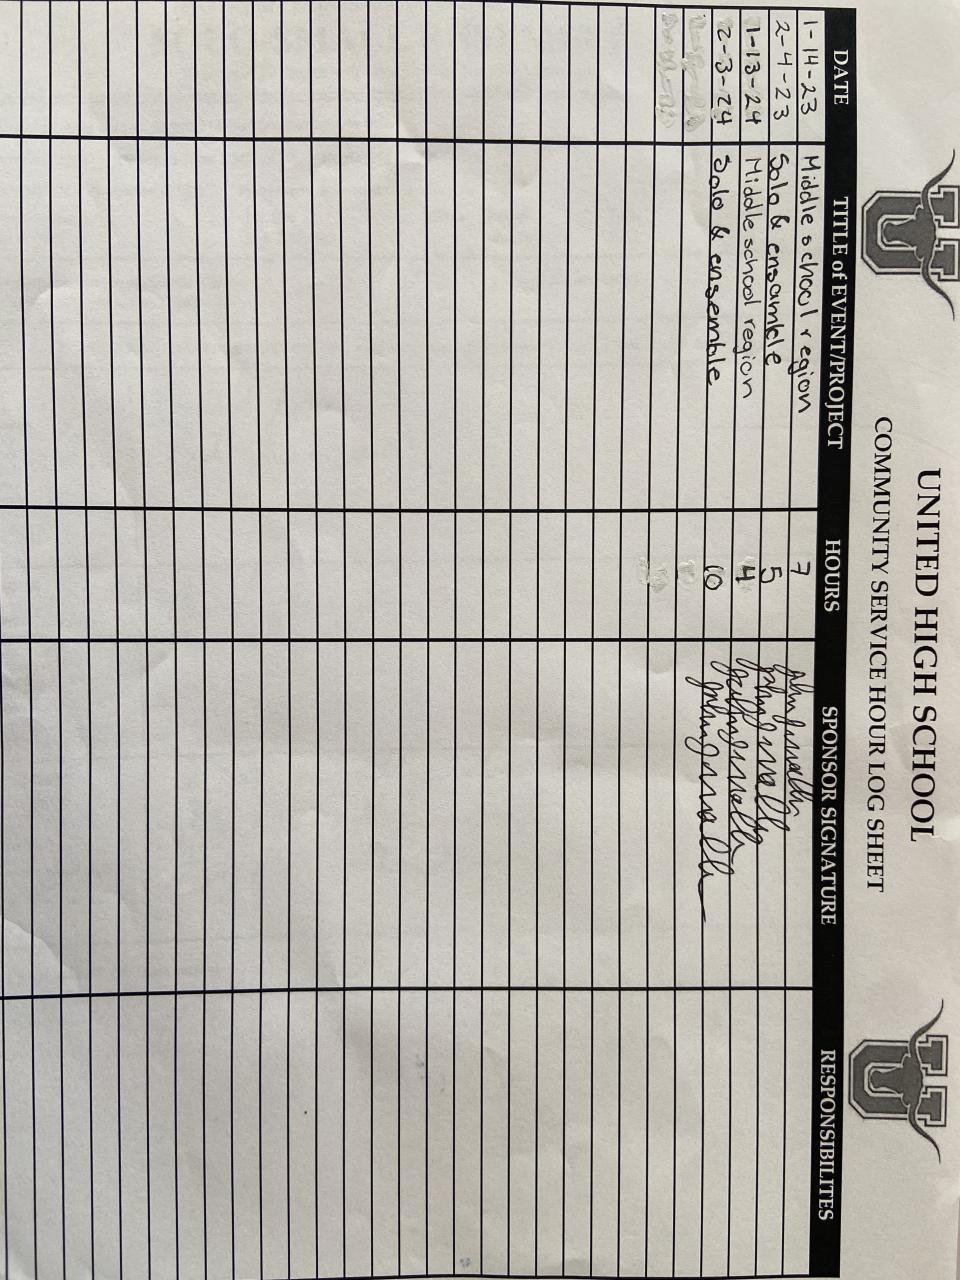 UNITED HIGH SCHOOL
COMMUNITY SERVICE HOUR LOG SHEET
DATE TITLE of EVENT/PROJECT HOURS SPONSOR SIGNATURE RESPONSIBILITES
1-14-23 Middle school region 7
2-4-23 Solo & ensamble 5
1-13-24 Middle school region 4
2-3-24 Solo & ensemble 10